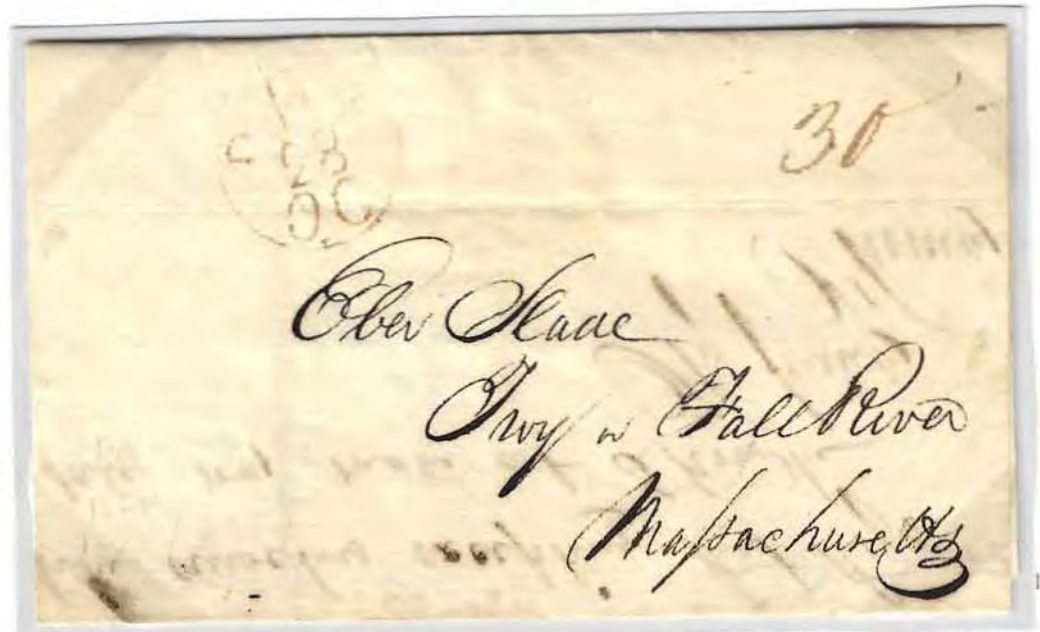 30
28
OC
Eber Slade
Troy or Fall River
Massachusetts